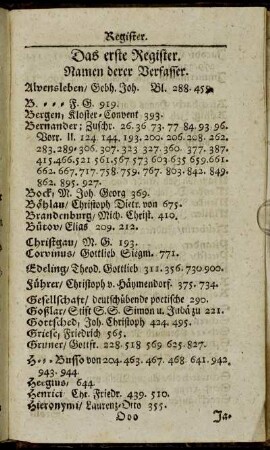 Register.
Das erste Register.
Namen derer Verfasser.
Alvensleben/ Gebh. Joh. Bl. 288. 458
B. • • • F. G. 919.
Bergen; Kloster-Convent 393.
Bernander; Zuschr. 26. 36. 73. 77. 84. 93. 96.
Vorr. II. 124. 144. 193. 200. 206. 208. 262.
283. 289. 306. 307. 323. 327. 360. 377. 387.
415. 466. 521. 561. 567. 573. 603. 635. 659. 661.
662. 667. 717. 758. 759. 767. 803. 842. 849.
862. 895. 927.
Bock; M. Joh. Georg 369.
Böhlau/ Christoph Dietr. von 675.
Brandenburg/ Mich. Christ. 410.
Bütow/ Elias 209. 212.
Christgau/ M. G. 193.
Corvinus/ Gottlieb Siegm. 771.
Edeling/ Theod. Gottlieb 311. 356. 730. 900.
Führer/ Christoph v. Haymendorf. 375. 734.
Gesellschaft/ deutschübende poetische 290.
Goßlar/ Stift S. S. Simon u. Judä zu 221.
Gortsched; Joh. Christoph 424. 495.
Griese, Friedrich 565.
Gruner/ Gottfr. 228. 518. 569. 625. 827.
H • • • Busso von 204. 463. 467. 468. 641. 942.
943. 944
Hergius/ 644.
Henrici Chr. Friedr. 439. 510.
Hieronymi/ Laurenz-Otto 355.
Ooo Ja-